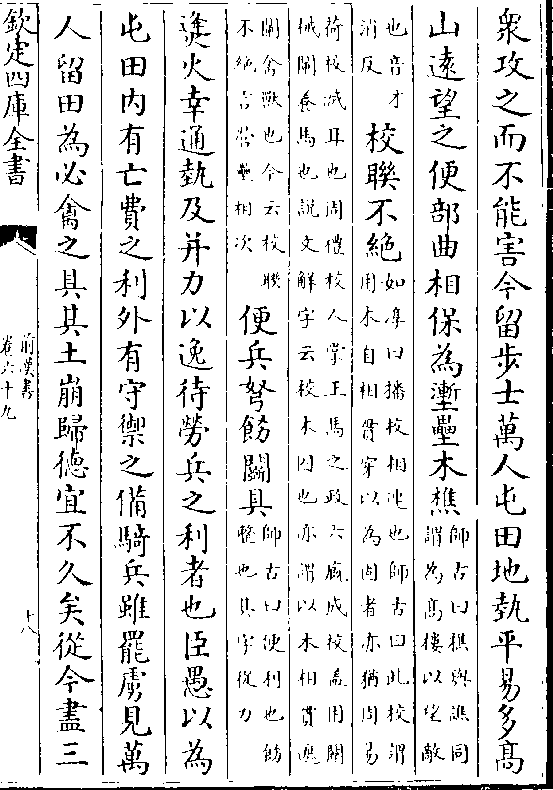 衆攻之而不能害今留步士萬人屯田地埶平易多髙
山逺望之便部曲相保為壍壘木樵
師古曰樵與譙同
謂為髙樓以望敵
也音才
消反
校聨不絶
如淳曰播校相連也師古曰此校謂
用木自相貫穿以為固者亦猶周易
荷校滅耳也周禮校人掌王馬之政六廐成校葢用關
械闌養馬也說文解字云校木囚也亦謂以木相貫遮
闌禽獸也今云校聨
不絶言營壘相次
便兵弩飭鬭具
師古曰便利也飭
整也其字從力
㷭火幸通埶及并力以逸待勞兵之利者也臣愚以為
屯田内有亡費之利外有守禦之備騎兵雖罷虜見萬
人留田為必禽之具其土崩歸徳宜不久矣從今盡三
欽定四庫全書
前漢書
卷六十九
十八